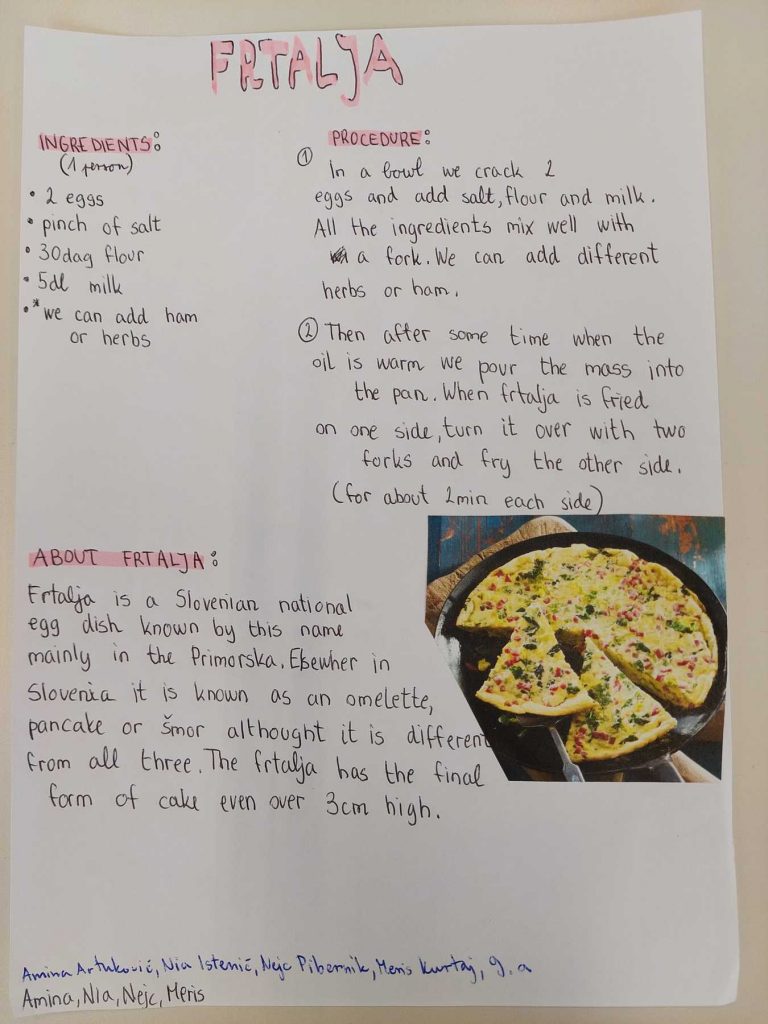 FRTALJA
INGREDIENTS:
(1 person)
• 2 eggs
• pinch of salt
• 30dag flour
• 5dl milk
• *we can add ham
or herbs
PROCEDURE:
① In a bowl we crack 2
eggs and add salt, flour and milk.
All the ingredients mix well with
a fork. We can add different
herbs or ham.
② Then after some time when the
oil is warm we pour the mass into
the pan. When frtalja is fried
on one side, turn it over with two
forks and fry the other side.
(for about 2min each side)
ABOUT FRTALJA:
Frtalja is a Slovenian national
egg dish known by this name
mainly in the Primorska. Elsewher in
Slovenia it is known as an omelette,
pancake or šmor althought it is different
from all three. The frtalja has the final
form of cake even over 3cm high.
Amina Artuković, Nia Istenič, Nejc Pibernik, Meris Kurtaj, 9. a
Amina, Nia, Nejc, Meris